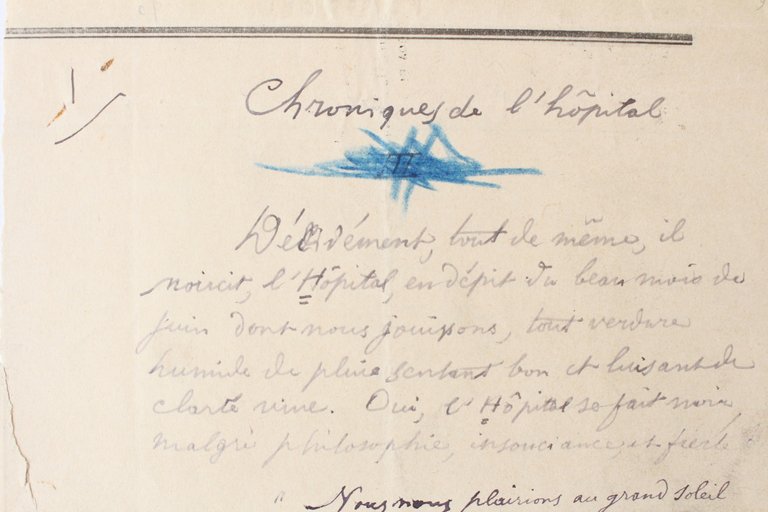 Chroniques de l'hôpital
II
Décidément, tout de même, il
noircit, l'Hôpital, en dépit du beau mois de
juin dont nous jouissons, tout verdure
humide de pluie sentant bon et luisant de
clarté vive. Oui, l'Hôpital se fait noir
malgré philosophie, insouciance et fierté
" Nous nous plairions au grand soleil